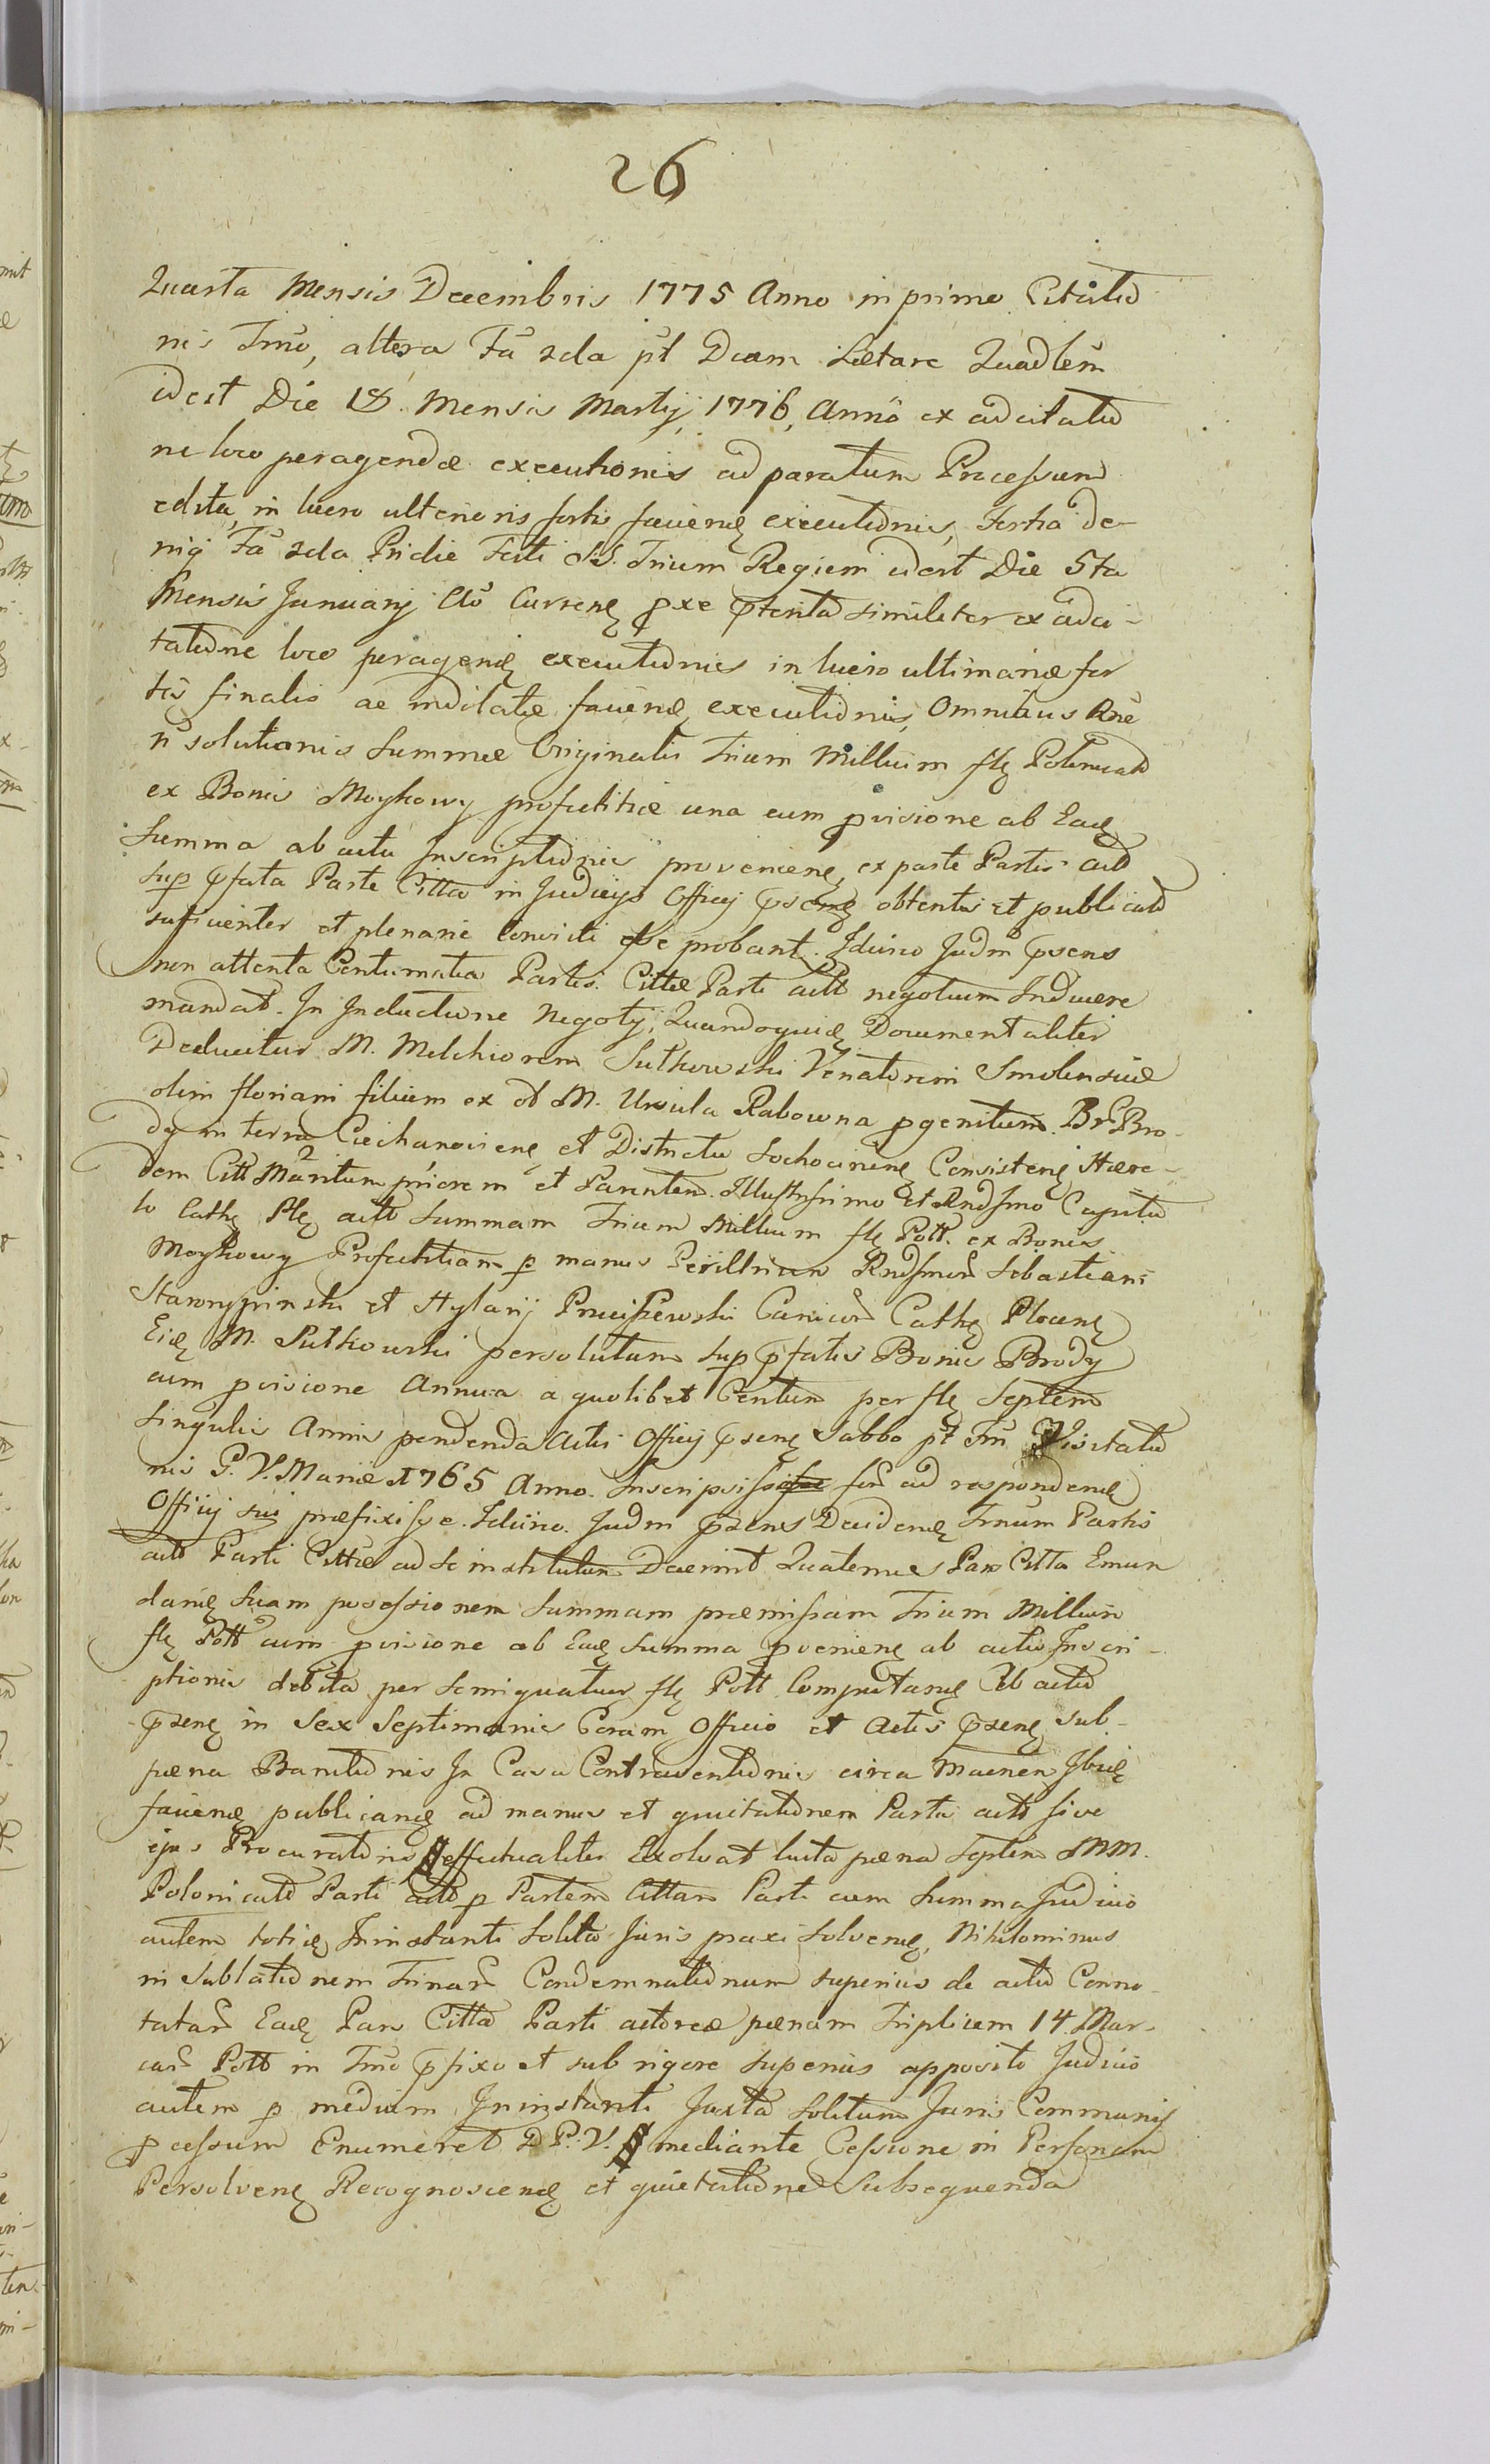 26
Quarta Mensis Decembris 1775 Anno in primo Citatio
nis Tmo, altera Fa 2da pt Dcam Lætare Quadlem
idest Die 18. Mensis Martij, 1776, Anno ex adcitatio
ne loco peragendæ executionis ad paratum Processum
edita, in lucro ulterioris fortis faciend executionis, tertia de-
niq Fa 2da Pridie Festi SS. Trium Regum idest Die 5ta
Mensis Januarij Ao Curren pxe ptenta similiter ex adci-
tatione loco peragend executionis in lucro ultimariæ for
tis finalis ac indilatæ faciend executionis, Omnibus Rne
n solutionis Summæ Originalis Trium Millium fl Polonicat
ex Bonis Moykowy profectitiæ una cum pvisione ab Ead
Summa ab actu Inscriptionis provenien, ex parte Partis act
sup pfata Parte Citta in Judicijs Officij psen obtentis et publicat
sufficienter et plenarie convicti esse probant. Idcirco Judm psens
non attenta Contumatia Partis Cittæ Parti act negotium Inducere
mandat. In Inductione Negotij, Quandoquid Documentaliter
Deducitur M. Melchiorem Sutkowski Venatorem Smolensciæ
olim Floriani filium ex ol M. Ursula Rabowna pgenitum. Br Bro-
dy in terra Ciechanovien et Districtu Sochocinen Consisten Hære-
dem Citt Maritum priorem et Parentem. Illustrissimo et Rndssmo Capitu
lo Cath Pl act Summam Trium Millium fl Poll. ex Bonis
Moykowy Profectitiam p manus Perillrium Rndsmor Sebastiani
et Hylarij Canicor Cath Plocen
Eid M. Sutkowski persolutam sup pfatis Bonis Brody
cum pvisione Annua a quolibet Centum per fl Septem
singulis Annis pendenda Actis Officij psen Sabbo pt Fm Visitatio
nis P. V. Mariæ 1765 Anno. Inscripsisse for ad respondend
Officij sui præfixisse. Idcirco. Judm psens Decidend Trnum Partis
act Parti Cittæ ad se institutum Decernit Quatenus Pars Citta Emun
dand suam possessionem Summam præmissam Trium Millium
fl Poll cum pvisione ab Ead Summa pvenien ab actu Inscri-
ptionis debita per semiquatuor fl Poll Computand Ab actu
psen in Sex Septimanis Coram Officio et Actis psen sub
pæna Banitionis In Casu Contraventionis circa Ibid
faciend publicand ad manus et quietationem Partis act sive
ejus Procuratoris effectualiter Exolvat luita pæna Septem MM.
Polonicat Parti act p Partem Cittam Parti cum Summa Judicio
autem totid Ininstanti solita Juris praxi solvend, Nihilominus
in Sublationem Trinar Condemnationum superius de actu Conno
tatar Ead Pars Citta Parti actoreæ pænam Triplicem 14 Mar-
car Poll in Tmo pfixo et sub rigore superius apposito Judicio
autem p medium Ininstanti Juxta solitum Juris Communis
pcessum Enumeret D P. V. mediante Cessione in Personam
Persolven Recognoscend et quietatione Subsequenda